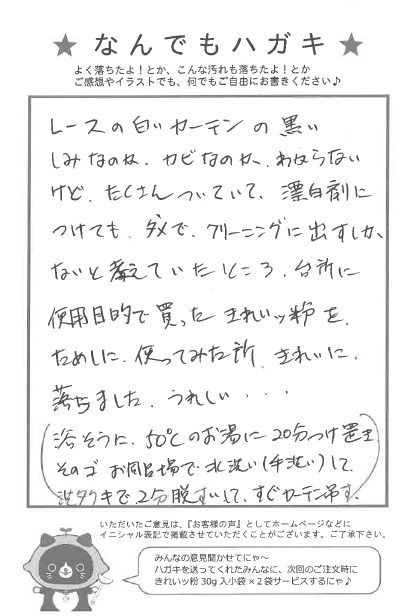 ★なんでもハガキ★
よく落ちたよ!とか、こんな汚れも落ちたよ!とか
ご感想やイラストでも、何でもご自由にお書きください♪
レースの白いカーテンの黒い
しみなのか、カビなのか、わからない
けど、たくさんついていて、漂白剤に
つけても、ダメで、クリーニングに出すしか、
ないと考えていたところ、台所に
使用目的で買ったきれいッ粉を、
ためしに、使ってみた所、きれいに、
落ちました。うれしい・・・
(浴そうに、50℃のお湯に20分つけ置き
そのゴお風呂場で水洗い(手洗い)して、
洗タクキで2分脱すいして、すぐカーテン吊す。)
いただいたご意見は、『お客様の声』としてホームページなどに
イニシャル表記で掲載させていただくことがございます。ご了承下さい。
みんなの意見聞かせてにゃ〜
ハガキを送ってくれたみんなに、次回のご注文時に
きれいッ粉30g入小袋×2袋サービスするにゃ♪